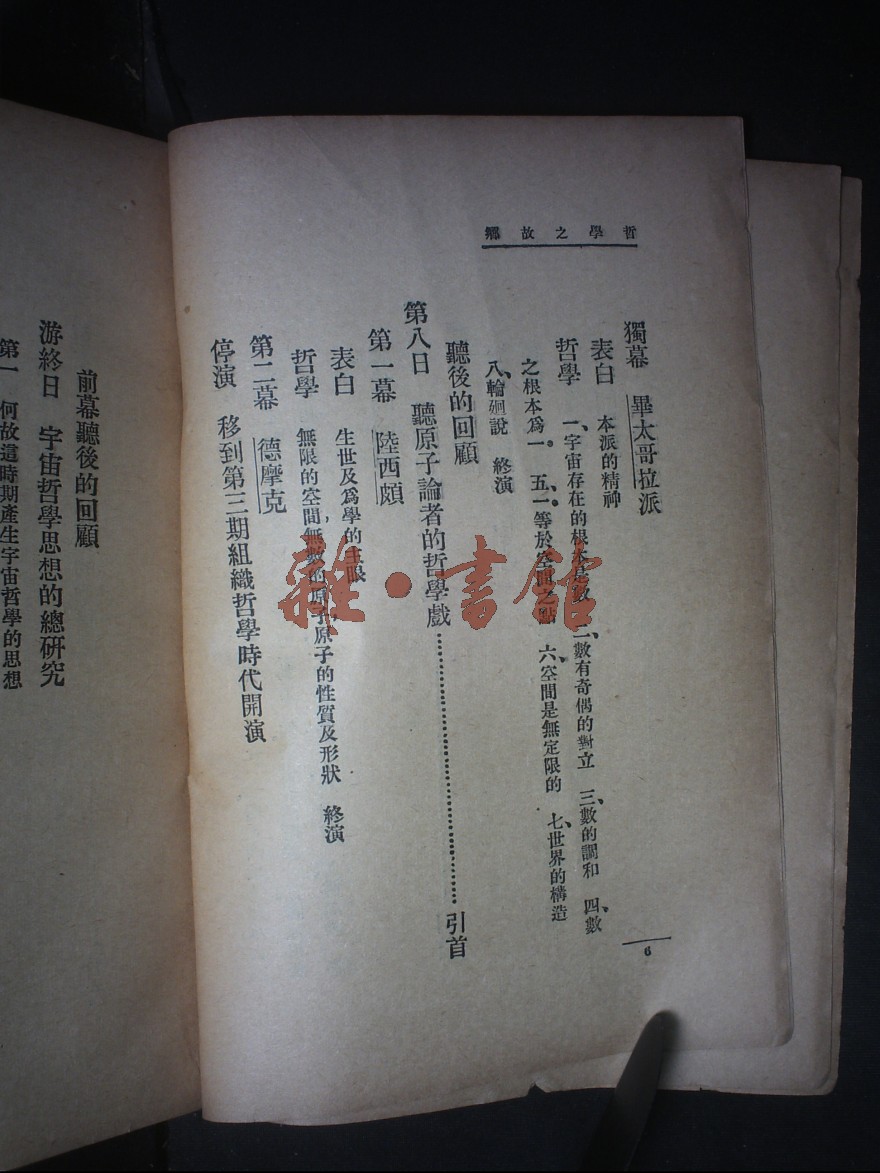 哲學之故鄉
獨幕　畢太哥拉派
表白　本派的精神
哲學　一、宇宙存在的根本是數　二、數有奇偶的對立　三、數的調和　四、數
之根本爲一。　五、一等於空間之點　六、空間是無定限的　七、世界的構造
八、輪廻說　終演
聽後的回顧
第八日　聽原子論者的哲學戲……引首
第一幕　陸西頗
表白　生世及爲學的主眼
哲學　無限的空間，無數的原子原子的性質及形狀　終演
第二幕　德摩克
停演　移到第三期組織哲學時代開演
6
前幕聽後的回顧
游終日　宇宙哲學思想的總研究
第一　何故這時期產生宇宙哲學的思想
雜·書館